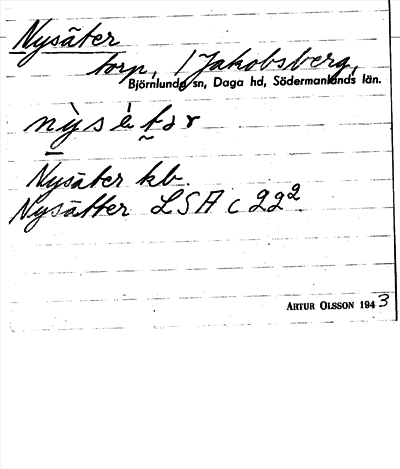 Nysäter
torp, / Jakobsberg,
Björnlunda sn, Daga hd, Södermanlands län.
Nysäter kb.
Nysätter LSA C 22²
ARTUR OLSSON 1943